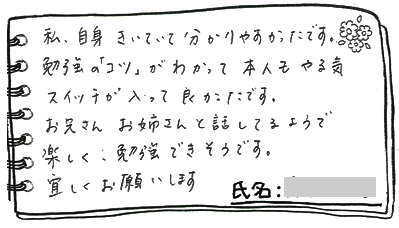 私、自身 きいていて分かりやすかったです。
勉強の「コツ」がわかって 本人も やる気
スイッチが入って 良かたです。
お兄さん お姉さんと話してるようで
楽しく、勉強できそうです。
宜しくお願いします
氏名：